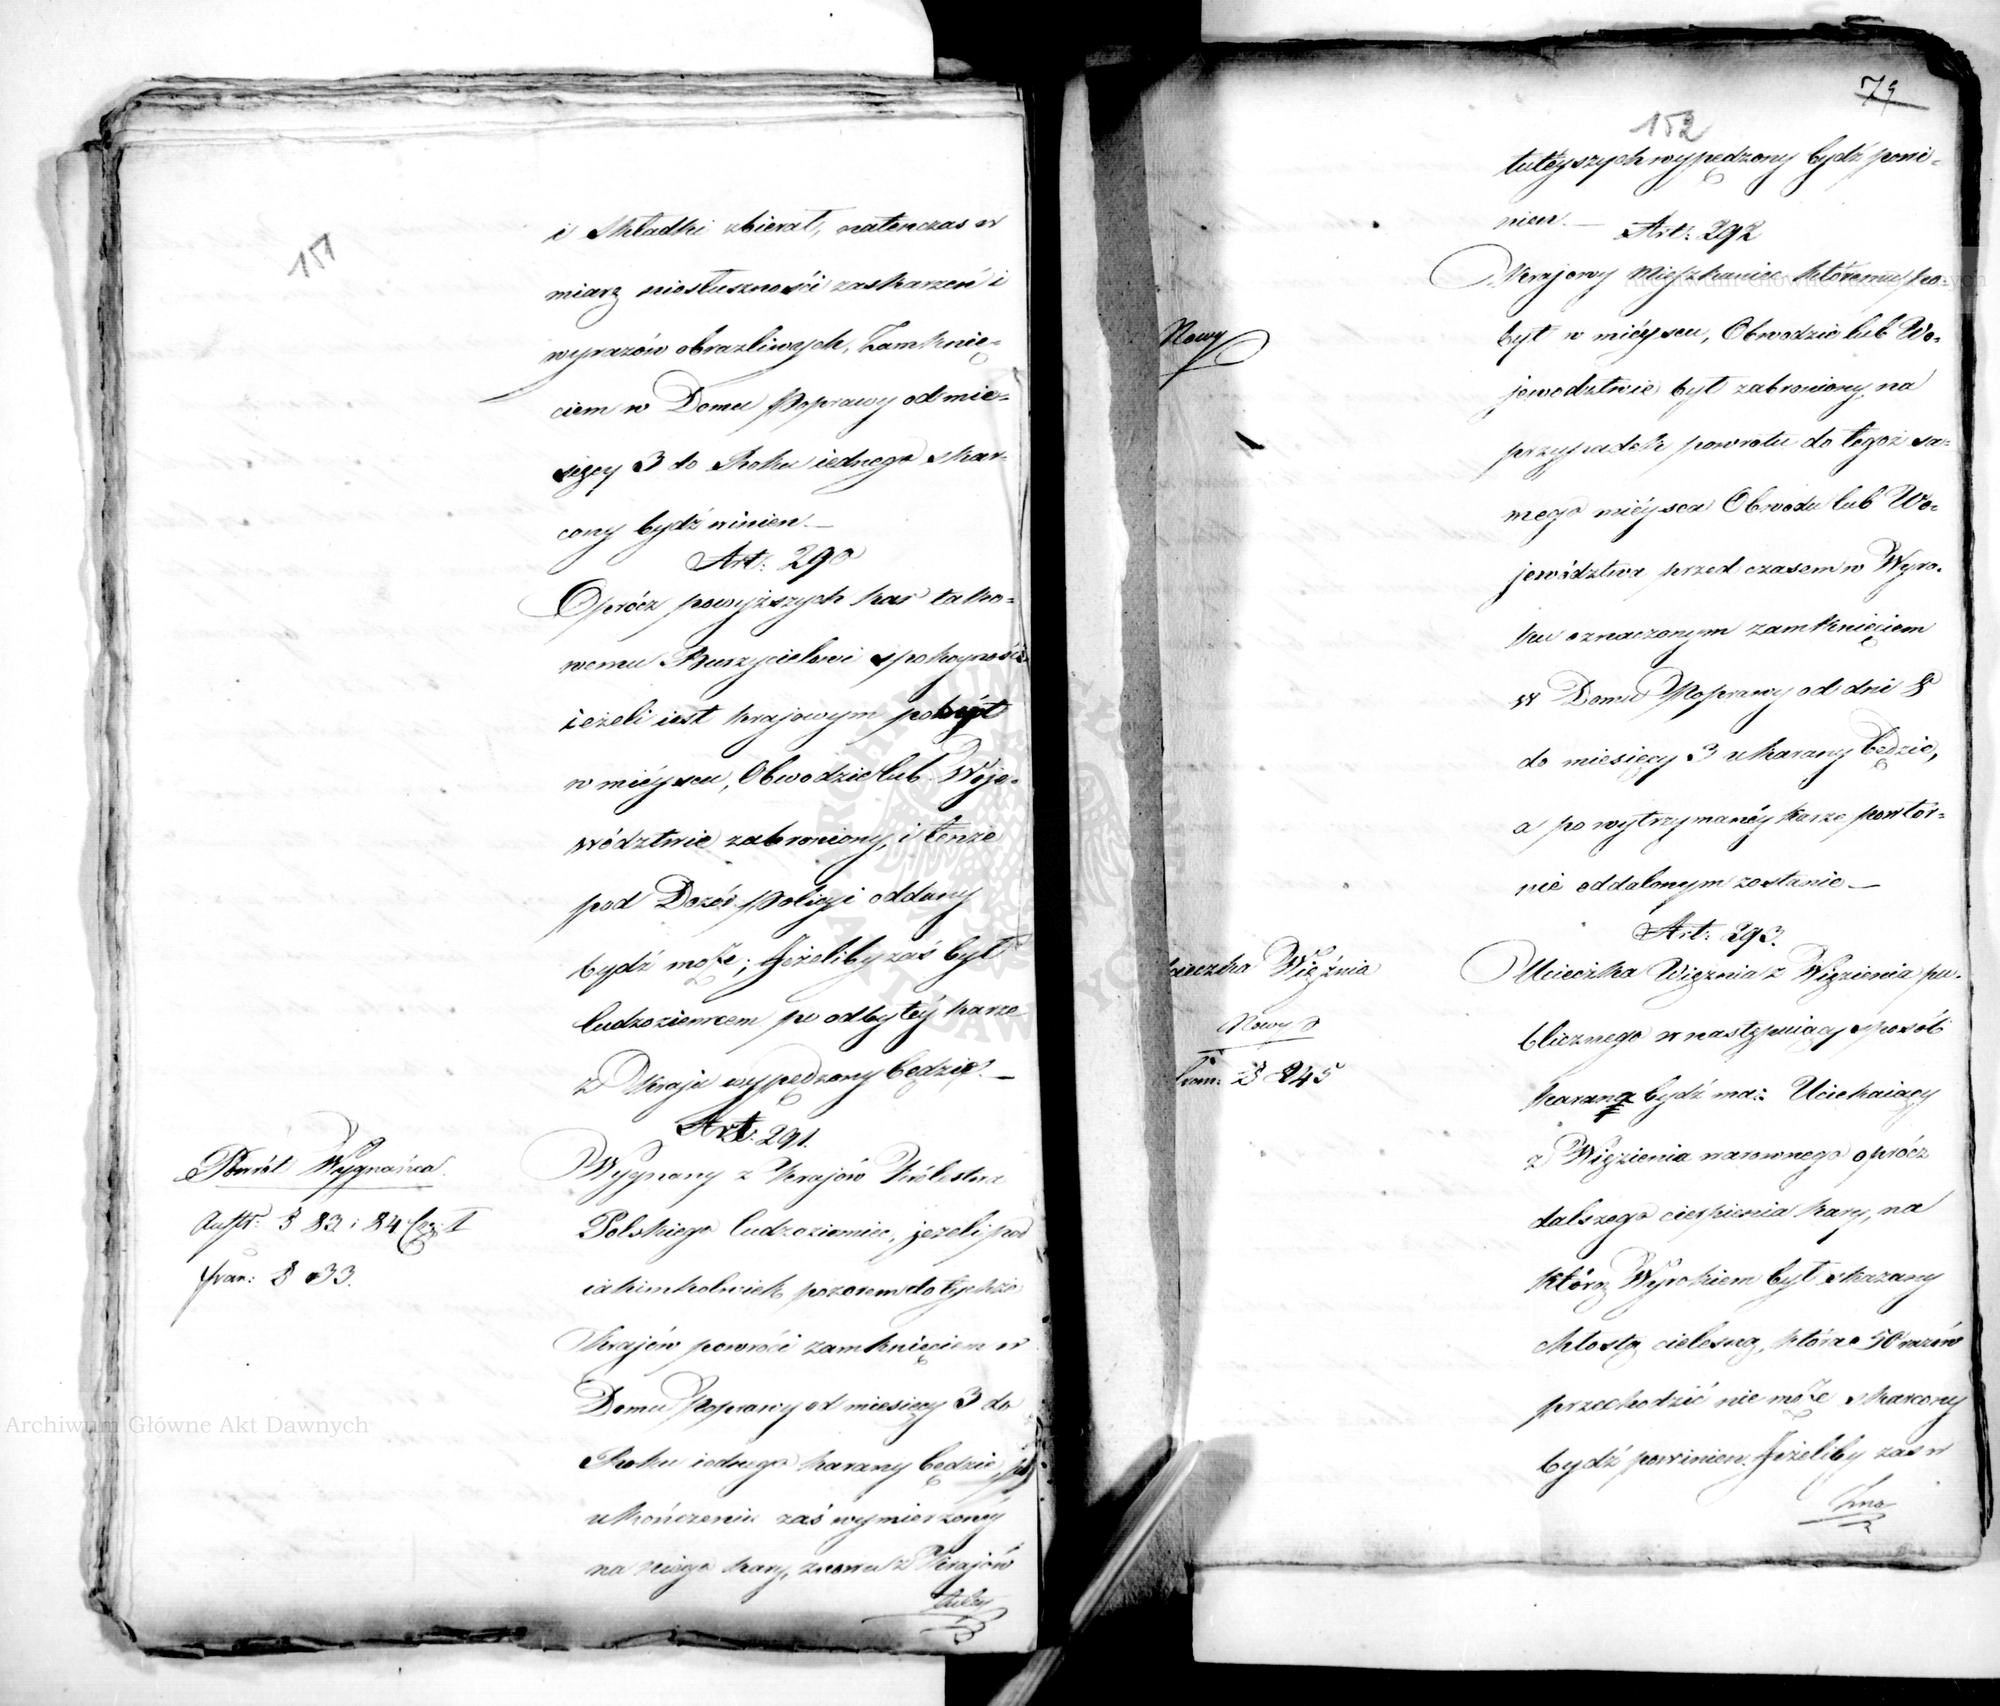 151
i składki zbierał, natenczas w
miarę niesłuszności zaskarzeń i
wyrazów obrazliwych, Zamknię-
ciem w Domu Poprawy od mie-
sięcy 3 do Roku iednego skar-
cony bydź winien. —
Art: 290
Oprócz powyższych kar tako-
wemu Burzycielowi spokoyności
ieżeli iest krajowym pobyt
w mieyscu, Obwodzie lub Woje-
wództwie zabroniony, i tenże
pod Dozór Policyi oddany
bydź może; Jeżeliby zaś był
Cudzoziemcem po odbytéy karze
z Kraju wypędzony będzie. —
Art: 291.
Powrót Wygnańca.
Austr: § 83 i 84 Częś: I
fran: § 33.
Wygnany z Krajów Królestwa
Polskiego Cudzoziemiec, jeżeli pod
iakimkolwiek pozorem do tychże
Krajów powróci zamknięciem w
Domu Poprawy od miesięcy 3 do
Roku iednego karany będzie, po
ukończeniu zaś wymierzonéy
na niego kary, znowu z Krajów
tutey
79
152
tuteyszych wypędzony bydź powi-
nien. —
Art: 292
Nowy
Krajowy Mieszkaniec któremu po-
byt w mieyscu, Obwodzie lub Wo-
jewodztwie był zabroniony, na
przypadek powrotu do tegoż sa-
mego mieysca Obwodu lub Wo-
jewództwa przed czasem w Wyro-
ku oznaczonym zamknięciem
w Domu Poprawy od dni 8
do miesięcy 3 ukarany będzie,
a po wytrzymanéy karze powtór-
nie oddalonym zostanie —
Art: 293.
Ucieczka Więźnia
Nowy
fran: § 245
Ucieczka Więznia z Więzienia pu-
blicznego w następuiący sposób
karaną bydź ma: Uciekaiący
z Więzienia warownego oprócz
dalszego cierpienia kary, na
którą Wyrokiem był skazany
chłostą cielesną, która 50 razów
przechodzić nie może skarcony
bydź powinien. Jeżeliby zaś w
Archiwum Główne Akt Dawnych